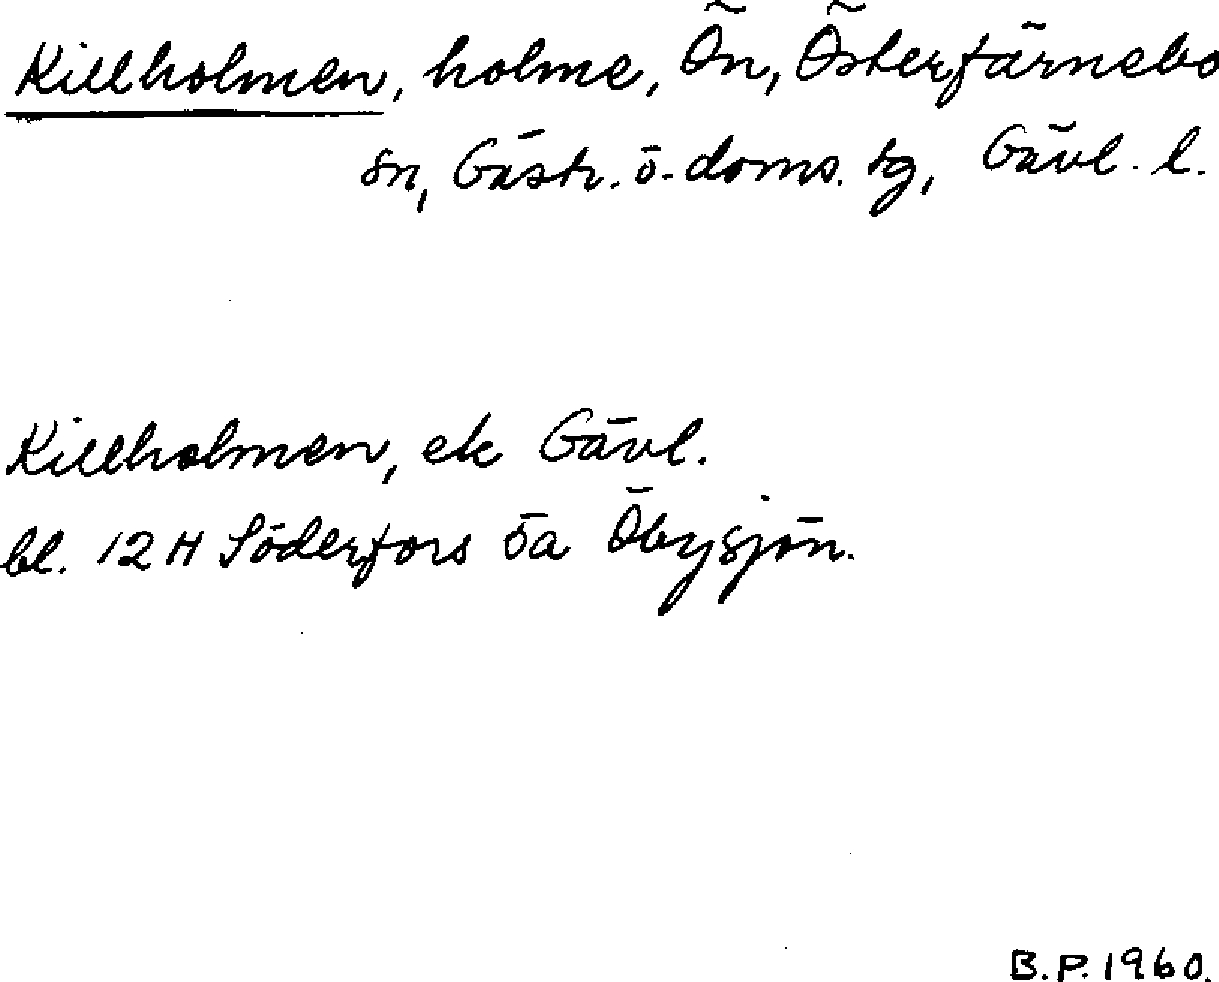 Killholmen, holme, Ön, Österfärnebo
sn, Gästr. ö. doms. tg, Gävl. l.
Killholmen, ek Gävl.
bl. 12 H Söderfors öa Öbysjön.
B.P. 1960.